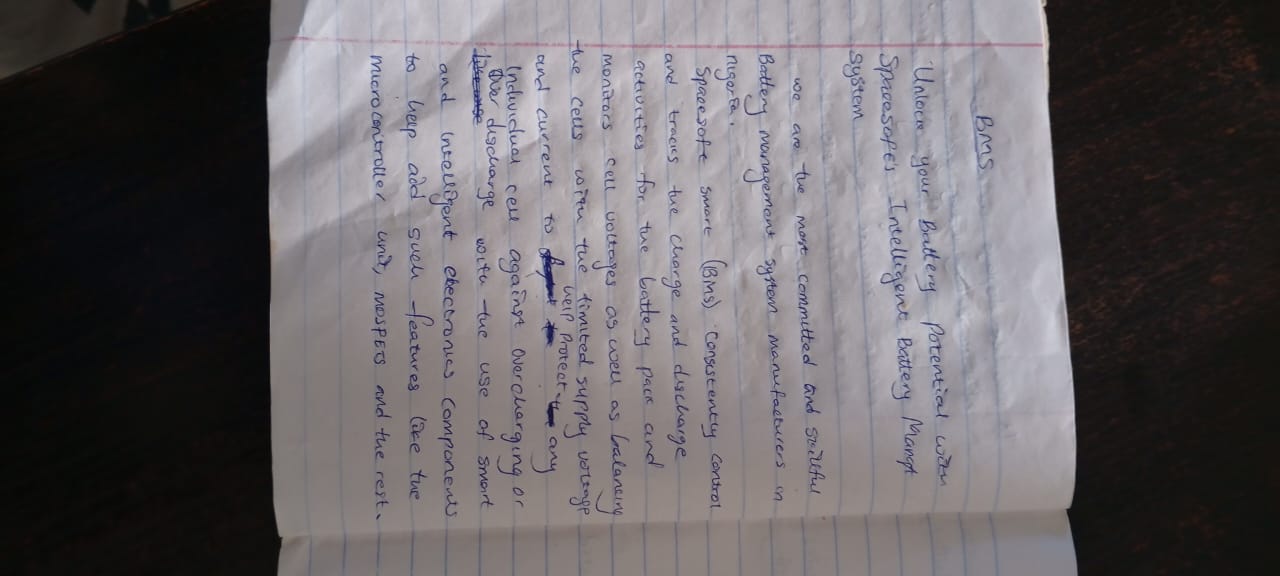 BMS
Unlock your Battery Potential with
Spacesofts Intelligent Battery Mangt
System
we are the most committed and skillful
Battery management system manufacturers in
Nigeria.
Spacesoft smart (BMS) consistently control
and tracks the charge and discharge
activities for the battery pack and
monitors cell voltages as well as balancing
the cells with the limited supply voltage
and current to help protect any
Individual cell against overcharging or
Over discharge with the use of smart
and intelligent electronics components
to help add such features like the
microcontroller unit, mospets and the rest.